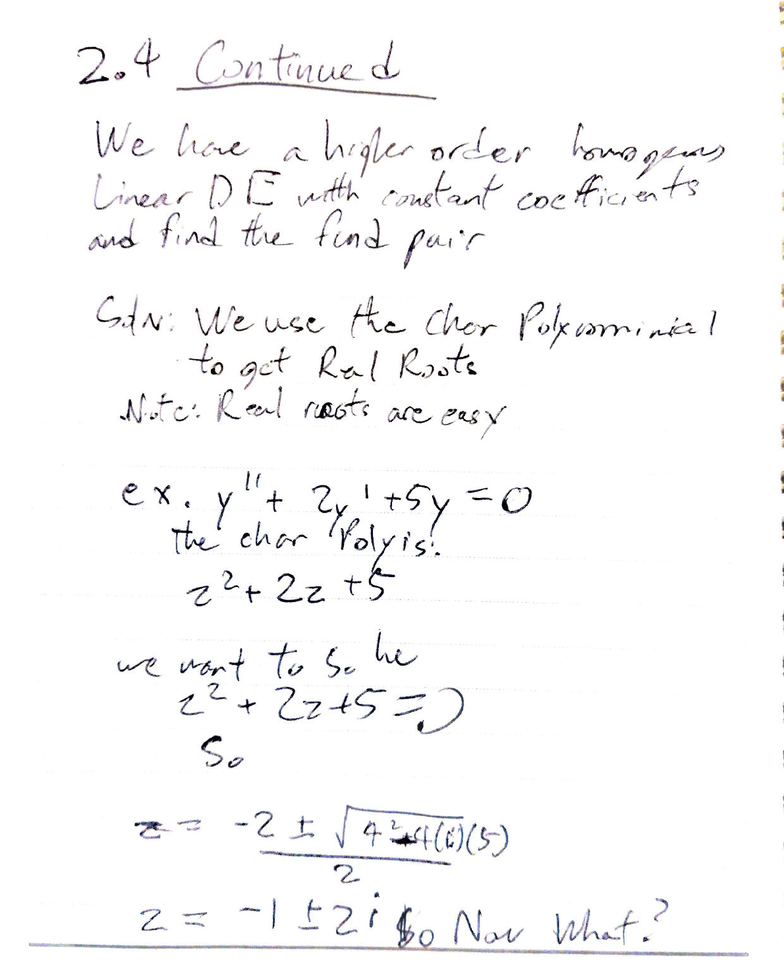 2.4 Continued
We have a higher order homogeneous
Linear DE with constant coefficients
and find the fund pair
Soln: We use the Char Polynominial
to get Real Roots
Note: Real roots are easy
ex. y'' + 2y' + 5y = 0
the char Poly is:
z² + 2z + 5
we want to solve
z² + 2z + 5 = 0
So
z = -2 ± √4² - 4(1)(5)
2
z = -1 ± 2i So Now What?